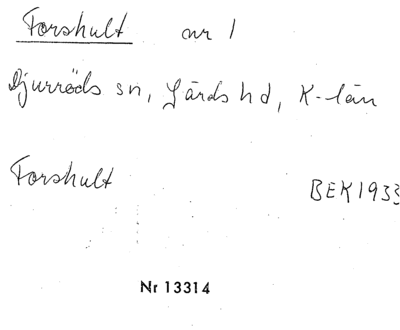 Forshult nr 1
Djurröds sn, Gärds hd, K-län
Forshult BEK 1933
Nr 13314